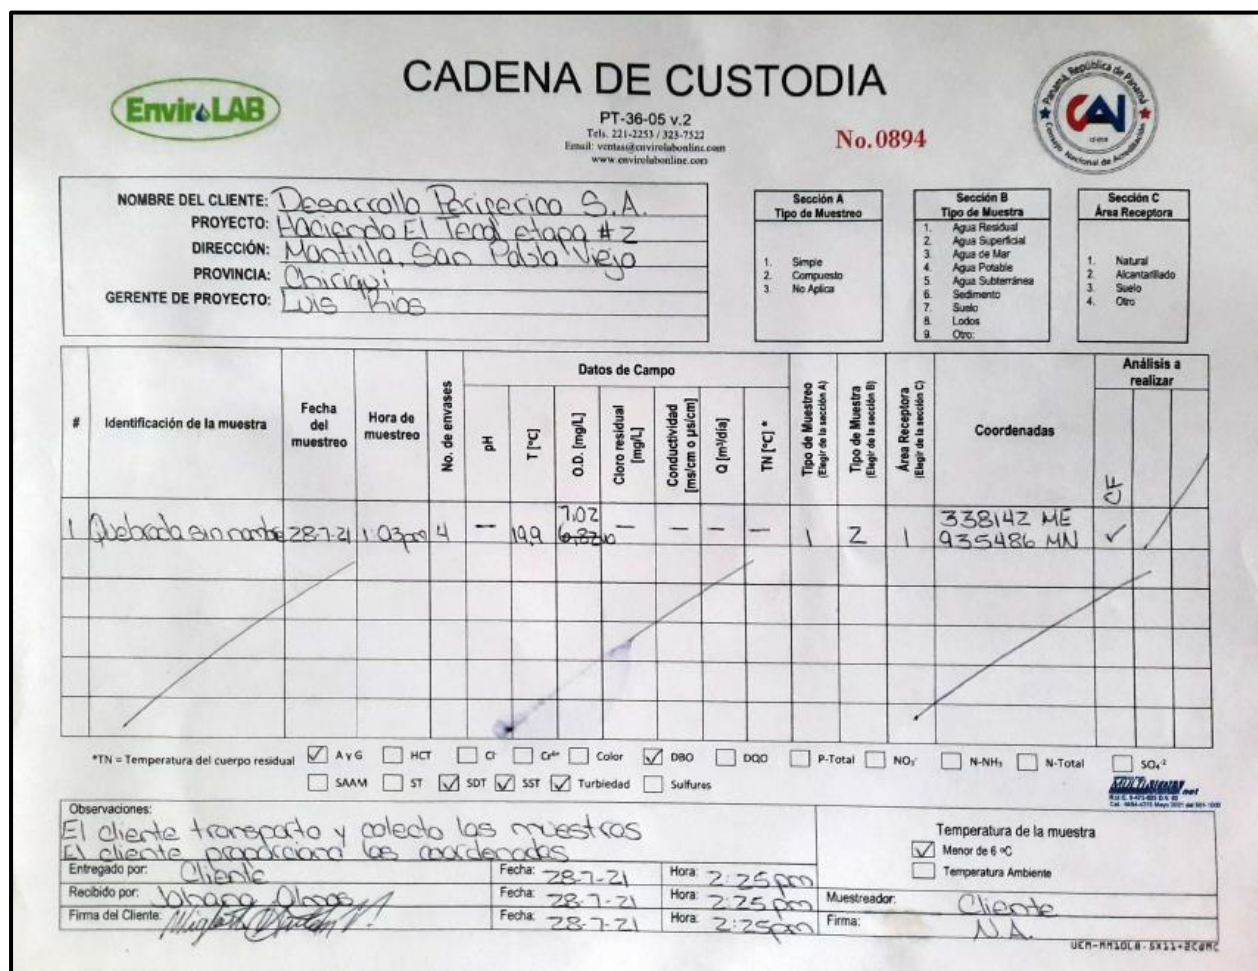 EnviroLAB
CADENA DE CUSTODIA
PT-36-05 v.2
Tels. 221-2253 / 323-7522
Email: ventas@envirolabonline.com
www.envirolabonline.com
No.0894
Panamá, República de Panamá
CAI
Consejo Nacional de Acreditación
NOMBRE DEL CLIENTE: Desarrollo Periferico S.A.
PROYECTO: Hacienda El Tecal etapa #2
DIRECCIÓN: Mantilla, San Pablo Viejo
PROVINCIA: Chiriqui
GERENTE DE PROYECTO: Luis Rios
Sección A
Tipo de Muestreo
1. Simple
2. Compuesto
3. No Aplica
Sección B
Tipo de Muestra
1. Agua Residual
2. Agua Superficial
3. Agua de Mar
4. Agua Potable
5. Agua Subterránea
6. Sedimento
7. Suelo
8. Lodos
9. Otro:
Sección C
Área Receptora
1. Natural
2. Alcantarillado
3. Suelo
4. Otro
#
Identificación de la muestra
Fecha del muestreo
Hora de muestreo
No. de envases
Datos de Campo
pH
T [°C]
O.D. [mg/L]
Cloro residual [mg/L]
Conductividad [ms/cm o µs/cm]
Q [m³/día]
TN [°C] *
Tipo de Muestreo (Elegir de la sección A)
Tipo de Muestra (Elegir de la sección B)
Área Receptora (Elegir de la sección C)
Coordenadas
Análisis a realizar
CF
1 Quebrada sin nombre 28-7-21 1:03pm 4 — 19,9 7.02 6,82 — — — — 1 2 1 338142 ME ✓
935486 MN
*TN = Temperatura del cuerpo residual ☑ A y G ☐ HCT ☐ Cl⁻ ☐ Cr⁶⁺ ☐ Color ☑ DBO ☐ DQO ☐ P-Total ☐ NO₃⁻ ☐ N-NH₃ ☐ N-Total ☐ SO₄⁻²
☐ SAAM ☐ ST ☑ SDT ☑ SST ☑ Turbiedad ☐ Sulfuros
Observaciones:
El cliente transporto y colecto las muestras
El cliente proporciona las coordenadas
Entregado por: Cliente Fecha: 28-7-21 Hora: 2:25pm
Recibido por: Johana Fecha: 28-7-21 Hora: 2:25pm
Firma del Cliente: Fecha: 28-7-21 Hora: 2:25pm
Temperatura de la muestra
☑ Menor de 6 ºC
☐ Temperatura Ambiente
Muestreador: Cliente
Firma: N.A.